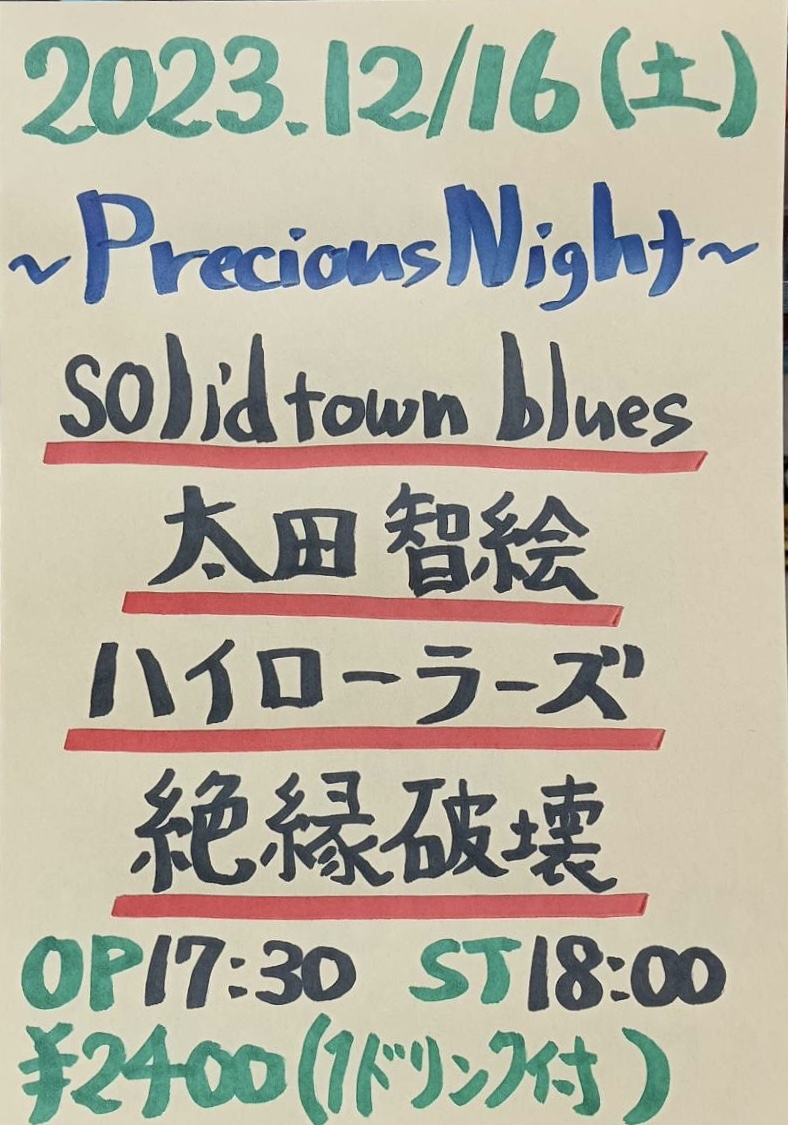 2023.12/16(土)
~Precious Night~
solid town blues
太田 智絵
ハイローラーズ
絶縁破壊
OP17:30 ST18:00
¥2400(1ドリンク付)